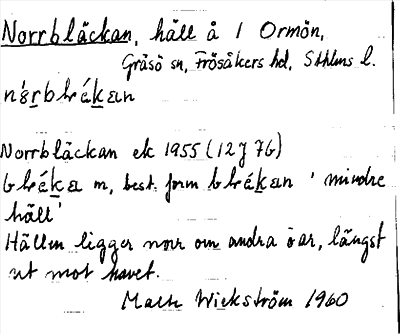 Norrbläckan, häll å 1 Ormön,
Gräsö sn, Frösåkers hd, Sthlms l.
Norrbläckan ek 1955 (12J 7b)
m, best. form 'mindre
häll'
Hällen ligger norr om andra öar, längst
ut mot havet.
Wickström 1960